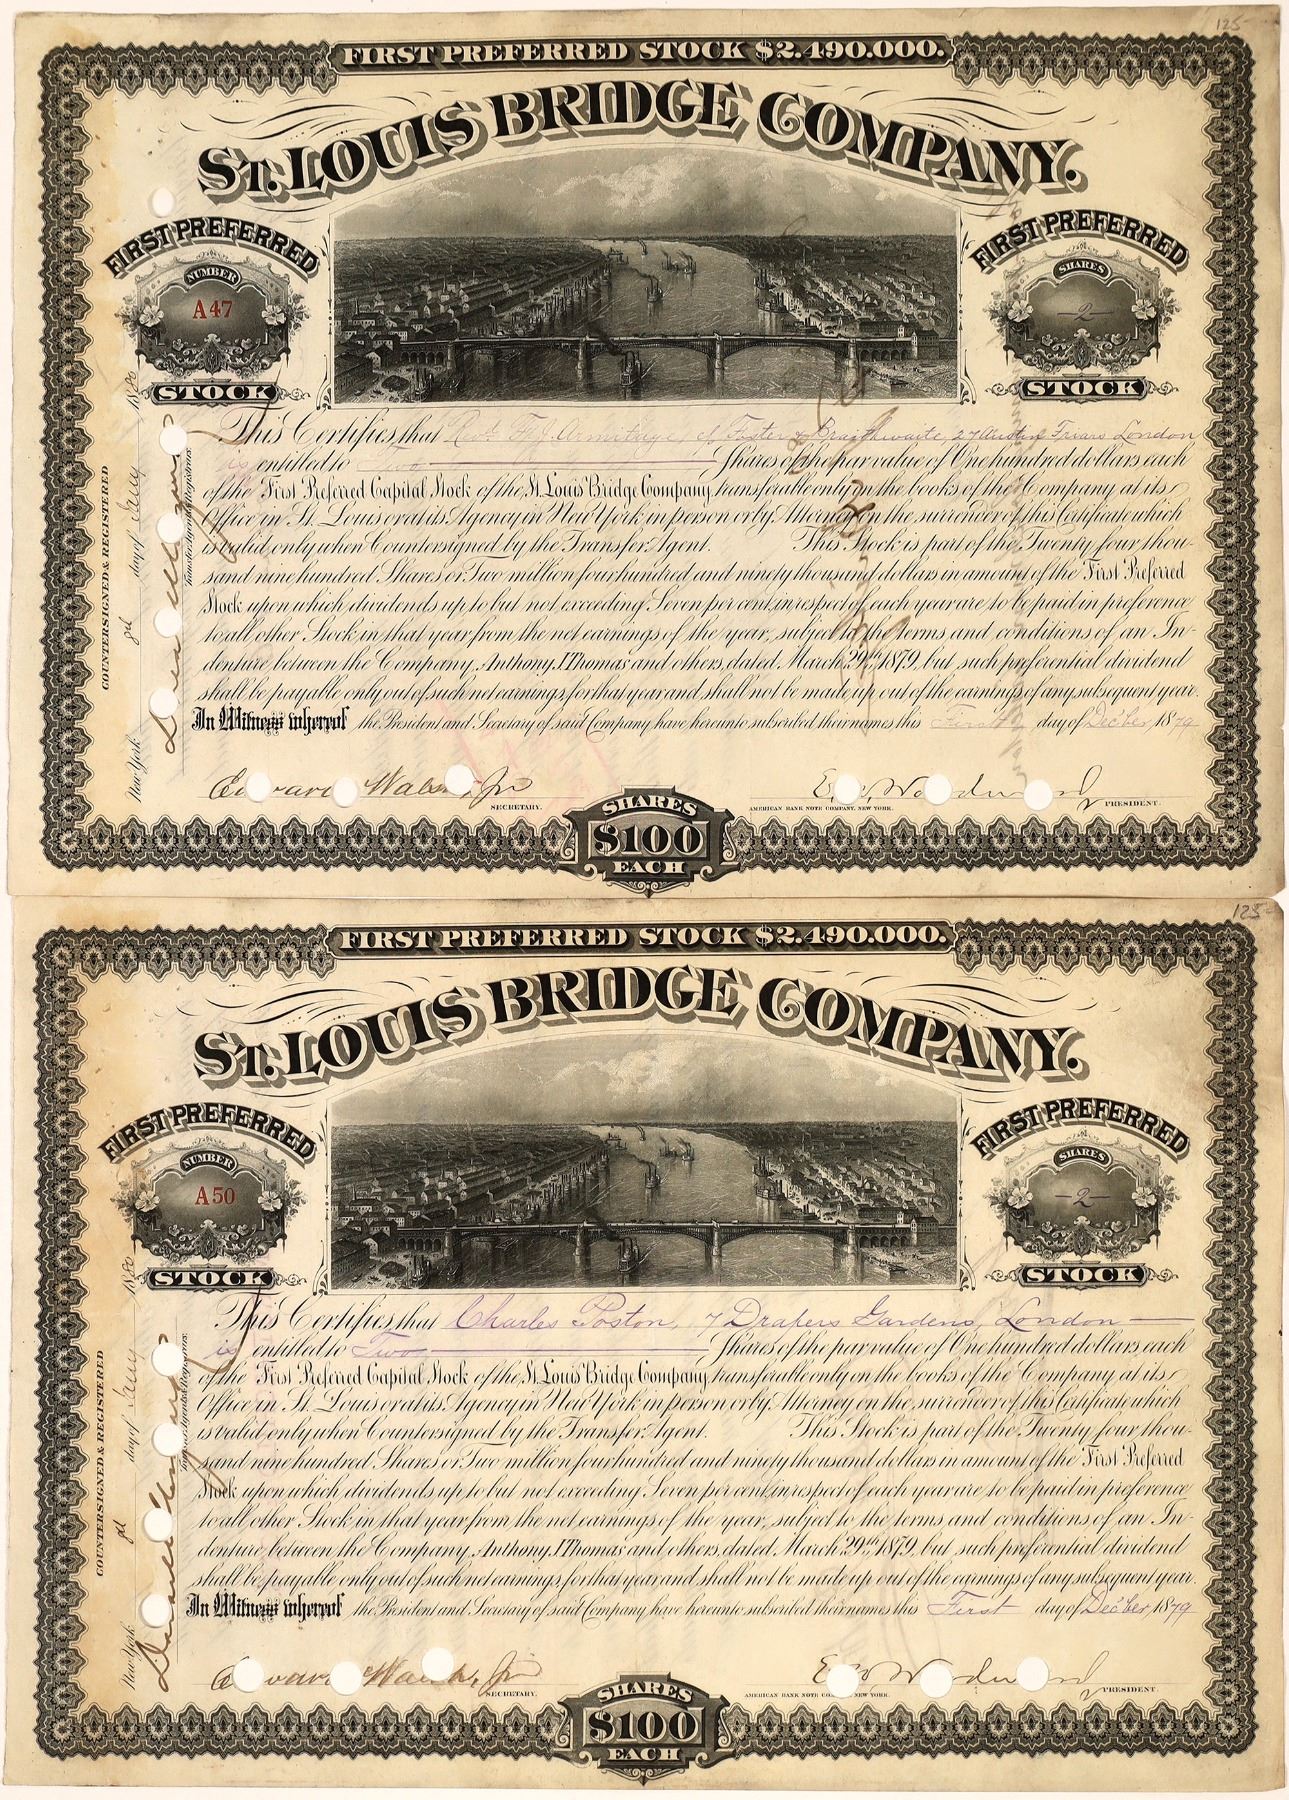 125-
FIRST PREFERRED STOCK $2.490.000.
ST. LOUIS BRIDGE COMPANY.
FIRST PREFERRED
NUMBER
A47
STOCK
FIRST PREFERRED
SHARES
2
STOCK
This Certifies, that Revd. F. J. Armitage of Foster & Braithwaite, 27 Austin Friars London
is entitled to Two Shares of the par value of One hundred dollars each
of the First Preferred Capital Stock of the St. Louis Bridge Company, transferable only on the books of the Company at its
Office in St. Louis or at its Agency in New York in person or by Attorney on the surrender of this Certificate which
is valid only when Countersigned by the Transfer Agent. This Stock is part of the Twenty four thou-
sand nine hundred Shares or Two million four hundred and ninety thousand dollars in amount of the First Preferred
Stock upon which dividends up to but not exceeding Seven per cent, in respect of each year are to be paid in preference
to all other Stock in that year from the net earnings of the year, subject to the terms and conditions of an In-
denture between the Company, Anthony J. Thomas and others, dated March 29th 1879, but such preferential dividend
shall be payable only out of such net earnings, for that year and shall not be made up out of the earnings of any subsequent year.
In Witness whereof the President and Secretary of said Company have hereunto subscribed their names this First day of Dec'ber, 1879
Edward Walsh, Jr
SECRETARY.
E. W. Woodward
PRESIDENT.
AMERICAN BANK NOTE COMPANY, NEW YORK.
SHARES
$100
EACH
COUNTERSIGNED & REGISTERED
New York day of Jany 1880
Transfer Agents & Registrars.
125-
FIRST PREFERRED STOCK $2.490.000.
ST. LOUIS BRIDGE COMPANY.
FIRST PREFERRED
NUMBER
A50
STOCK
FIRST PREFERRED
SHARES
-2-
STOCK
This Certifies, that Charles Poston, 7 Drapers Gardens, London
is entitled to Two Shares of the par value of One hundred dollars each
of the First Preferred Capital Stock of the St. Louis Bridge Company, transferable only on the books of the Company at its
Office in St. Louis or at its Agency in New York in person or by Attorney on the surrender of this Certificate which
is valid only when Countersigned by the Transfer Agent. This Stock is part of the Twenty four thou-
sand nine hundred Shares or Two million four hundred and ninety thousand dollars in amount of the First Preferred
Stock upon which dividends up to but not exceeding Seven per cent, in respect of each year are to be paid in preference
to all other Stock in that year from the net earnings of the year, subject to the terms and conditions of an In-
denture between the Company, Anthony J. Thomas and others, dated March 29th 1879, but such preferential dividend
shall be payable only out of such net earnings, for that year and shall not be made up out of the earnings of any subsequent year.
In Witness whereof the President and Secretary of said Company have hereunto subscribed their names this First day of Dec'ber, 1879
Edward Walsh, Jr
SECRETARY.
E. W. Woodward
PRESIDENT.
AMERICAN BANK NOTE CO NEW YORK.
SHARES
$100
EACH
COUNTERSIGNED & REGISTERED
New York day of Jany 1880
Transfer Agents & Registrars.